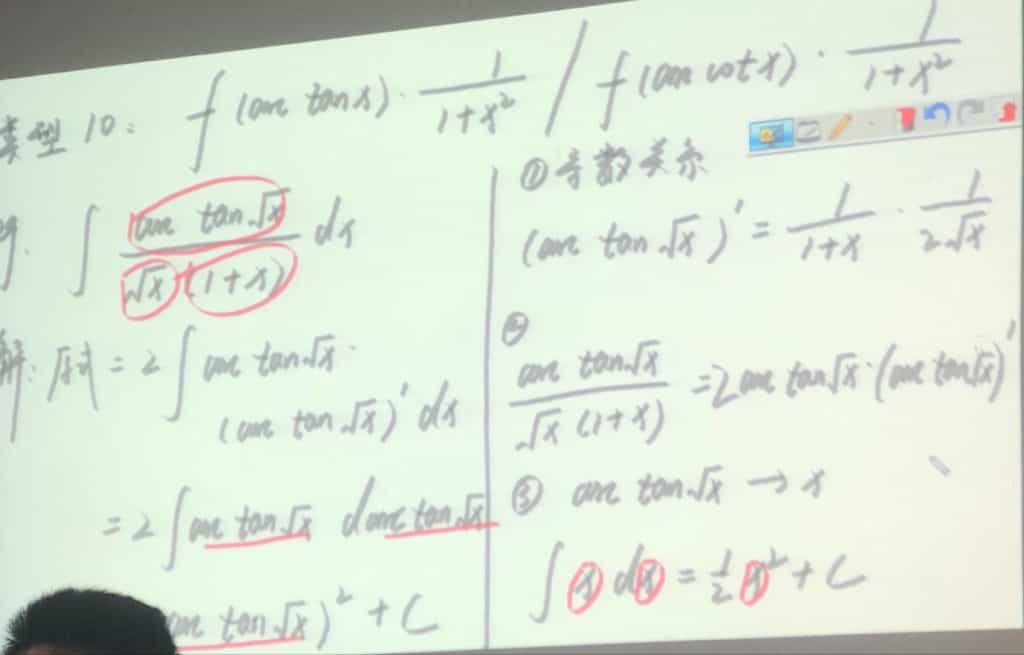 类型 10: f(arc tanx)·1/(1+x²) / f(arc cotx)·1/(1+x²)
例. ∫ arc tan√x / (√x (1+x)) dx
解: 原式 = 2∫ arc tan√x·
(arc tan√x)' dx
= 2∫ arc tan√x d arc tan√x
arc tan√x)² + C
① 导数关系
(arc tan√x)' = 1/(1+x) · 1/(2√x)
②
arc tan√x / (√x (1+x)) = 2 arc tan√x·(arc tan√x)'
③ arc tan√x → x
∫ x dx = 1/2 x² + C